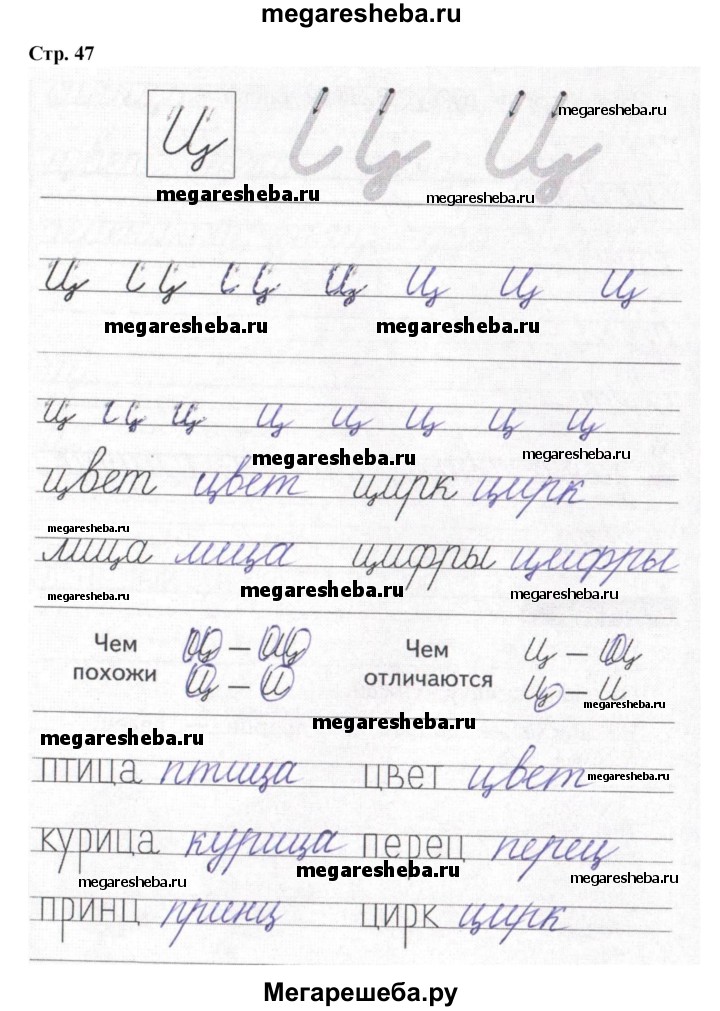 megaresheba.ru
Стр. 47
megaresheba.ru
Ц Ц Ц
megaresheba.ru megaresheba.ru
Ц Ц Ц Ц Ц Ц Ц
megaresheba.ru megaresheba.ru
ц ц ц ц ц ц ц ц
megaresheba.ru megaresheba.ru
цвет цвет цирк цирк
megaresheba.ru
лица лица цифры цифры
megaresheba.ru megaresheba.ru megaresheba.ru
Чем похожи Ц – Щ Чем отличаются Ц – Щ
Ц – И Ц – И
megaresheba.ru
megaresheba.ru
megaresheba.ru
птица птица цвет цвет
megaresheba.ru
курица курица перец перец
megaresheba.ru megaresheba.ru megaresheba.ru
принц принц цирк цирк
Мегарешеба.ру